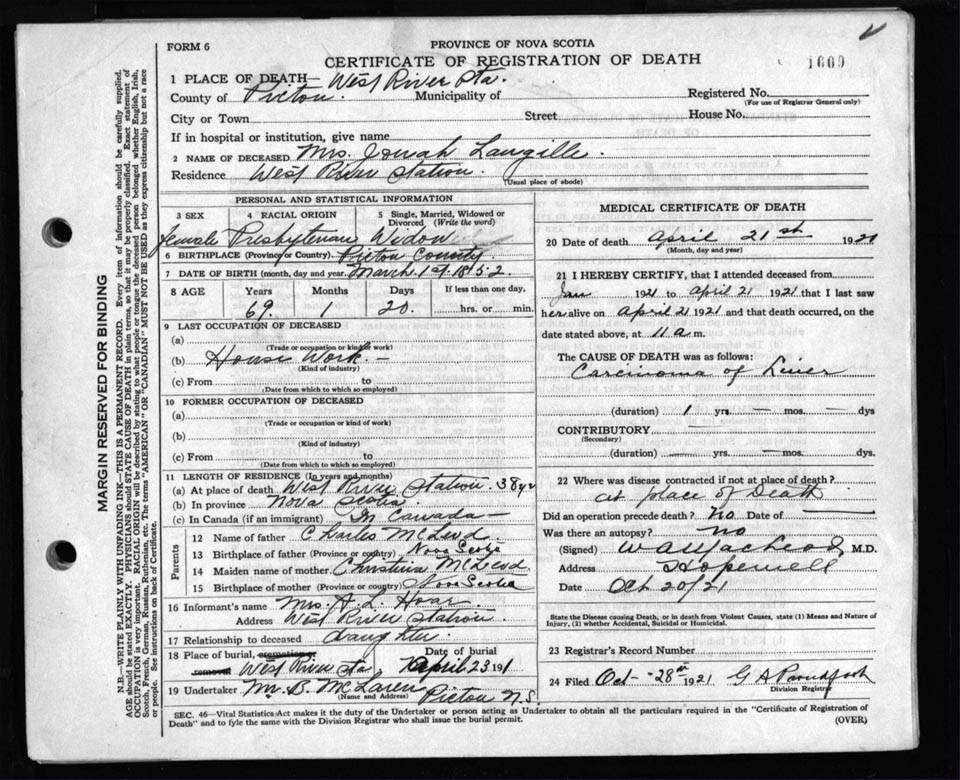 FORM 6
PROVINCE OF NOVA SCOTIA
CERTIFICATE OF REGISTRATION OF DEATH
1669
1 PLACE OF DEATH— West River Sta.
County of Pictou. Municipality of
Registered No.
(For use of Registrar General only)
City or Town Street House No.
If in hospital or institution, give name
2 NAME OF DECEASED Mrs. Jonah Langille.
Residence West River Station.
(Usual place of abode)
PERSONAL AND STATISTICAL INFORMATION
3 SEX 4 RACIAL ORIGIN 5 Single, Married, Widowed or Divorced (Write the word)
Female Presbyterian Widow
6 BIRTHPLACE (Province or Country) Pictou County.
7 DATE OF BIRTH (month, day and year) March. 1st. 1852.
8 AGE Years Months Days If less than one day,
69. 1 20. hrs. or min.
9 LAST OCCUPATION OF DECEASED
(a)
(Trade or occupation or kind of work)
(b) House Work.—
(Kind of industry)
(c) From to
(Date from which to which so employed)
10 FORMER OCCUPATION OF DECEASED
(a)
(Trade or occupation or kind of work)
(b)
(Kind of industry)
(c) From to
(Date from which to which so employed)
11 LENGTH OF RESIDENCE (In years and months)
(a) At place of death West River Station. 38 yrs
(b) In province Nova Scotia
(c) In Canada (if an immigrant) In Canada —
Parents
12 Name of father Charles McLeod
13 Birthplace of father (Province or country) Nova Scotia
14 Maiden name of mother Christina McLeod
15 Birthplace of mother (Province or country) Nova Scotia
16 Informant's name Mrs. A. L. Hoar.
Address West River Station.
17 Relationship to deceased daughter.
18 Place of burial, cremation or removal Date of burial
West River Sta, April 23 191
19 Undertaker M. B. McLaren
(Name and Address) Pictou N.S.
MEDICAL CERTIFICATE OF DEATH
20 Date of death April 21st 1921
(Month, day and year)
21 I HEREBY CERTIFY, that I attended deceased from
Jan 1921 to April 21 1921 that I last saw
her alive on April 21 1921 and that death occurred, on the
date stated above, at 11 a m.
The CAUSE OF DEATH was as follows:
Carcinoma of Liver
(duration) 1 yrs. — mos. — dys
CONTRIBUTORY —
(Secondary)
(duration) — yrs. — mos. dys.
22 Where was disease contracted if not at place of death?
at place of Death
Did an operation precede death? no Date of —
Was there an autopsy? no
(Signed) W A MacLeod, M.D.
Address Hopewell
Date Oct 20/21
State the Disease causing Death, or in death from Violent Causes, state (1) Means and Nature of Injury, (2) whether Accidental, Suicidal or Homicidal.
23 Registrar's Record Number
24 Filed Oct- -28th 1921
Division Registrar
SEC. 46—Vital Statistics Act makes it the duty of the Undertaker or person acting as Undertaker to obtain all the particulars required in the "Certificate of Registration of
Death" and to fyle the same with the Division Registrar who shall issue the burial permit.
(OVER)
MARGIN RESERVED FOR BINDING
N.B.—WRITE PLAINLY WITH UNFADING INK—THIS IS A PERMANENT RECORD. Every item of information should be carefully supplied.
AGE should be stated EXACTLY. PHYSICIANS should STATE CAUSE OF DEATH in plain terms, so that it may be properly classified. Exact statement of
OCCUPATION is very important. RACIAL ORIGIN will be described by stating to what people or tongue the deceased person belonged whether English, Irish,
Scotch, French, German, Russian, Ruthenian, etc. The terms "AMERICAN" OR "CANADIAN" MUST NOT BE USED as they express citizenship but not a race
or people. See instructions on back of Certificate.